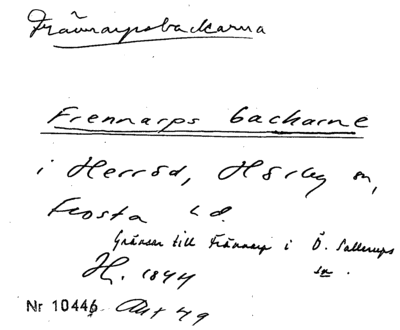 Frännarpsbackarna
Frennarps backarne
i Herröd, Hörby sn,
Frosta hd.
Gränsar till Frännarp i Ö. Sallerups
sn.
Hj. 1844
Nr 10446 Akt 49